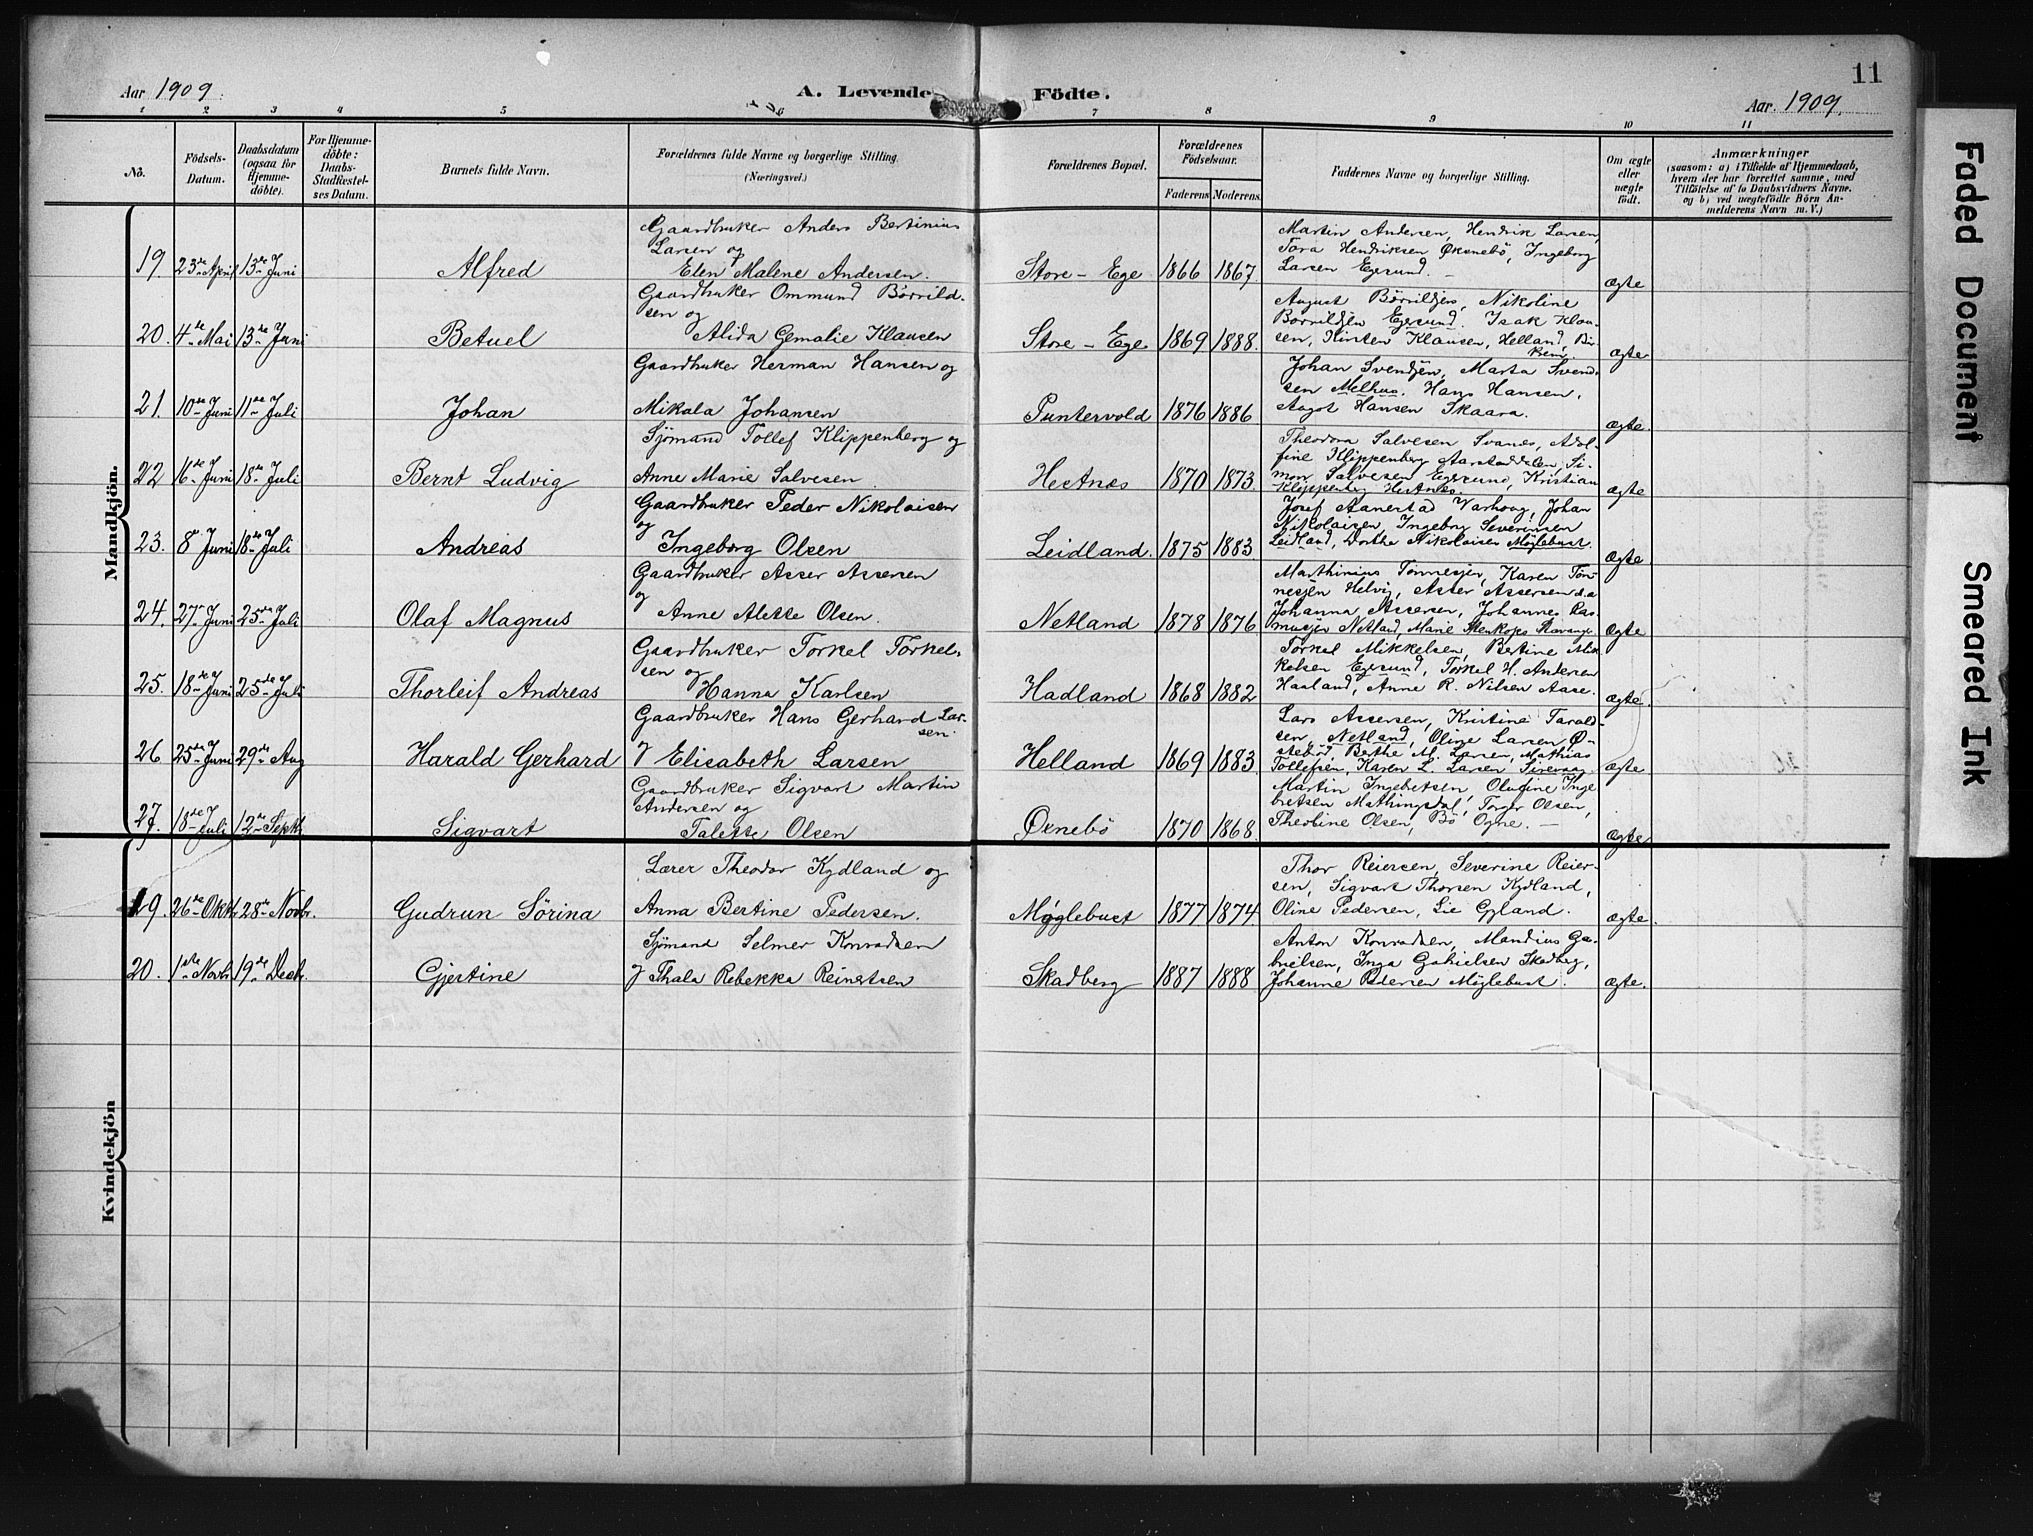 11
Aar 1909.
A. Levende Födte.
Aar. 1909.
1 2 3 4 5 6 7 8 9 10 11
No.
Födsels-
Datum.
Daabsdatum
(ogsaa for
Hjemme-
döbte).
For Hjemme-
döbte:
Daabs-
Stadfæstel-
ses Datum.
Barnets fulde Navn.
Forældrenes fulde Navne og borgerlige Stilling.
(Næringsvei.)
Forældrenes Bopæl.
Forældrenes
Födselsaar.
Faderens Moderens.
Faddernes Navne og borgerlige Stilling.
Om ægte
eller
uægte
födt.
Anmærkninger
(saasom: a) i Tilfælde af Hjemmedaab,
hvem der har forrettet samme, med
Tilföielse af to Daabsvidners Navne.
og b) ved uægtefödte Börn An-
melderens Navn m. V.)
Mandkjön.
19. 23de April 13de Juni
Alfred
Gaardbruker Anders Bertinius
Larsen og
Elen Malene Andersen.
Store - Ege 1866 1867.
Martin Andersen, Hendrik Larsen,
Tora Hendriksen Øksnebö, Ingeborg
Larsen Egersund. -
ægte
20. 4de Mai 13de Juni
Betuel
Gaardbruker Ommund Börrild-
sen og
Alida Gemalie Klausen
Store - Ege 1869 1888.
August Börrildsen, Nikoline
Börrildsen Egersund. Isak Klau-
sen, Kirsten Klausen, Helland, Bir-
krem.
ægte
21. 10de Juni 11te Juli
Johan
Gaardbruker Herman Hansen og
Mikala Johansen
Puntervold 1876 1886
Johan Svendsen, Marta Svend-
sen Melhus. Hans Hansen,
Aagot Hansen Skaara.
ægte.
22 16de Juni 18de Juli
Bernt Ludvig
Sjömand Tollef Klippenberg og
Anne Marie Salvesen
Hestnes 1870 1873.
Theodora Salvesen Svanes, Adol-
fine Klippenberg Aarstaddalen, Si-
mon Salvesen Egersund, Kristian
Klippenberg Hestnes.
ægte
23. 8de Juni 18de Juli
Andreas
Gaardbruker Peder Nikolaisen
og
Ingeborg Olsen
Leidland. 1875 1883
Josef Aanestad Varhoug, Johan
Nikolaisen, Ingeborg Severinsen
Leidland, Dorthe Nikolaisen Møglebust.
ægte.
24. 27de Juni 25de Juli
Olaf Magnus
Gaardbruker Asser Assersen
og
Anne Alette Olsen.
Netland 1878 1876
Marthinius Tönnesen, Karen Tön-
nesen Helvig, Asser Assersen d.æ
Johanna Assersen, Johannes Ras-
musen Netland, Marie Stenkops Stavanger
ægte
25. 18de Juni 25de Juli
Thorleif Andreas
Gaardbruker Torkel Torkel-
sen og
Hanna Karlsen
Hadland 1868 1882
Torkel Mikkelsen, Bertine Mik-
kelsen Egersund, Torkel H. Andersen
Haaland, Anne R. Nilsen Aase.
ægte.
26 25de Juni 29de Aug
Harald Gerhard
Gaardbruker Hans Gerhard Lar-
sen.
og Elisabeth Larsen
Helland 1869 1883.
Lars Assersen, Kristine Tarald-
sen, Netland, Oline Larsen Ø-
stebö, Berthe M. Larsen, Mathias
Tollefsen, Karen L. Larsen Sirevaag.
ægte
27. 18de Juli 12te Septb.
Sigvart
Gaardbruker Sigvart Martin
Andersen og
Talette Olsen
Øxnebö 1870 1868.
Martin Ingebretsen, Olufine Inge-
bretsen Mathingsdal, Torger Olsen,
Theoline Olsen, Bö Ogne. -
ægte
Kvindekjön
19. 26de Oktbr. 28de Novbr.
Gudrun Sörina
Lærer Theodor Kydland og
Anna Bertine Pedersen.
Møglebust 1877 1874.
Thor Reiersen, Severine Reier-
sen, Sigvart Thorsen Kydland,
Oline Pedersen, Lie Gyland.
ægte.
20. 1ste Novb. 19de Decbr.
Gjertine
Sjömand Selmer Konradsen
og Thala Rebekka Reinertsen
Skadberg 1887 1888
Anton Konradsen, Mandius Ga-
brielsen, Inga Gabrielsen Skadberg,
Johanne Pedersen Møglebust.
ægte.
Faded Document
Smeared Ink